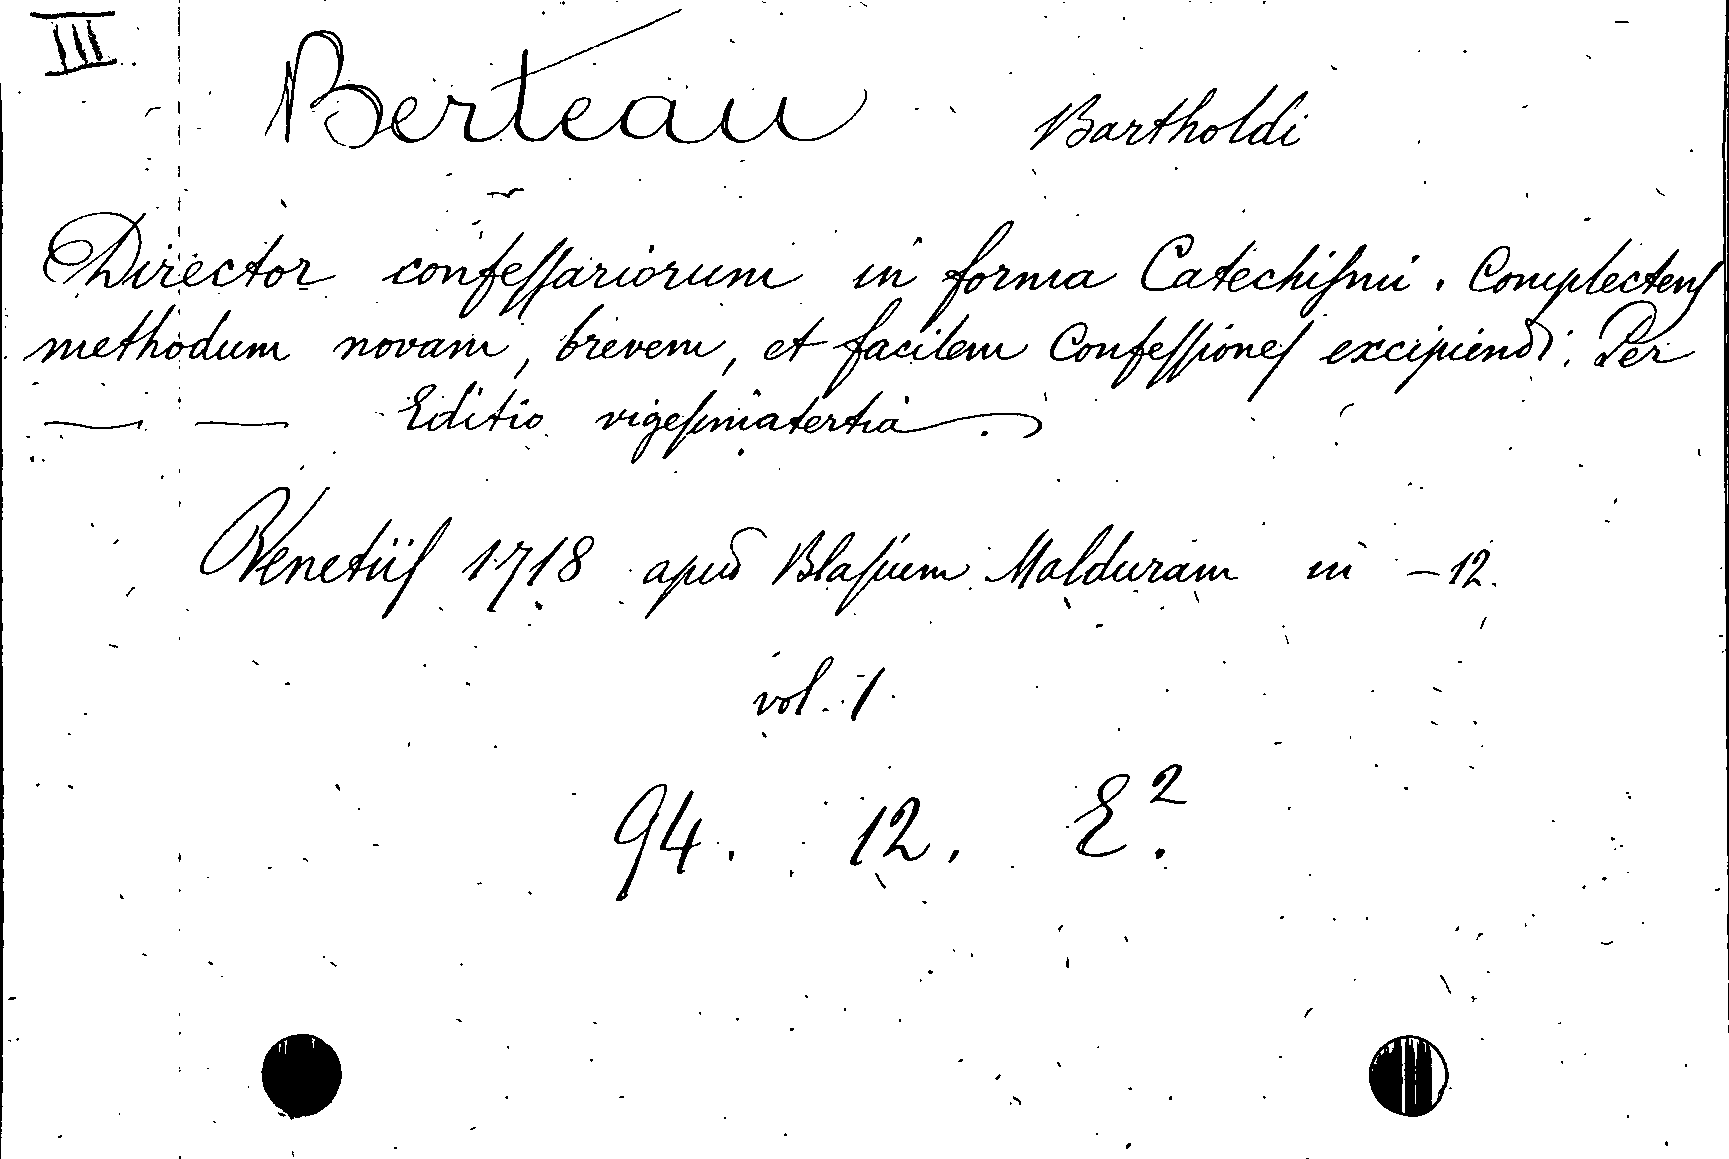 III
Berteau Bartholdi
Director confeſſariorum in forma Catechiſmi. Complectens
methodum novam, brevem, et facilem Confeſſiones excipiendi. Per
— — Editio vigeſimatertia.
Venetiis 1718 apud Blaſium Malduram in -12.
vol. 1
94. 12. E².